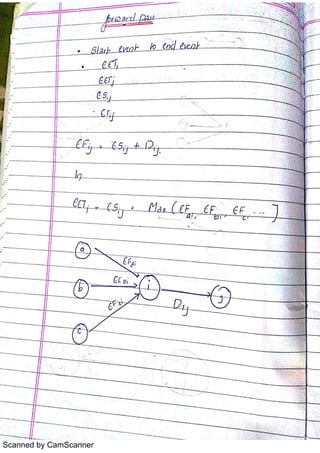 forward Pass
• Start event to end event
• EETi
EETj
ESij
EFij
EFij = ESij + Dij
EETi = ESij = Max ( EFai, EFbi, EFci ... ]
a
EFai
b
i
Dij
j
c
Scanned by CamScanner